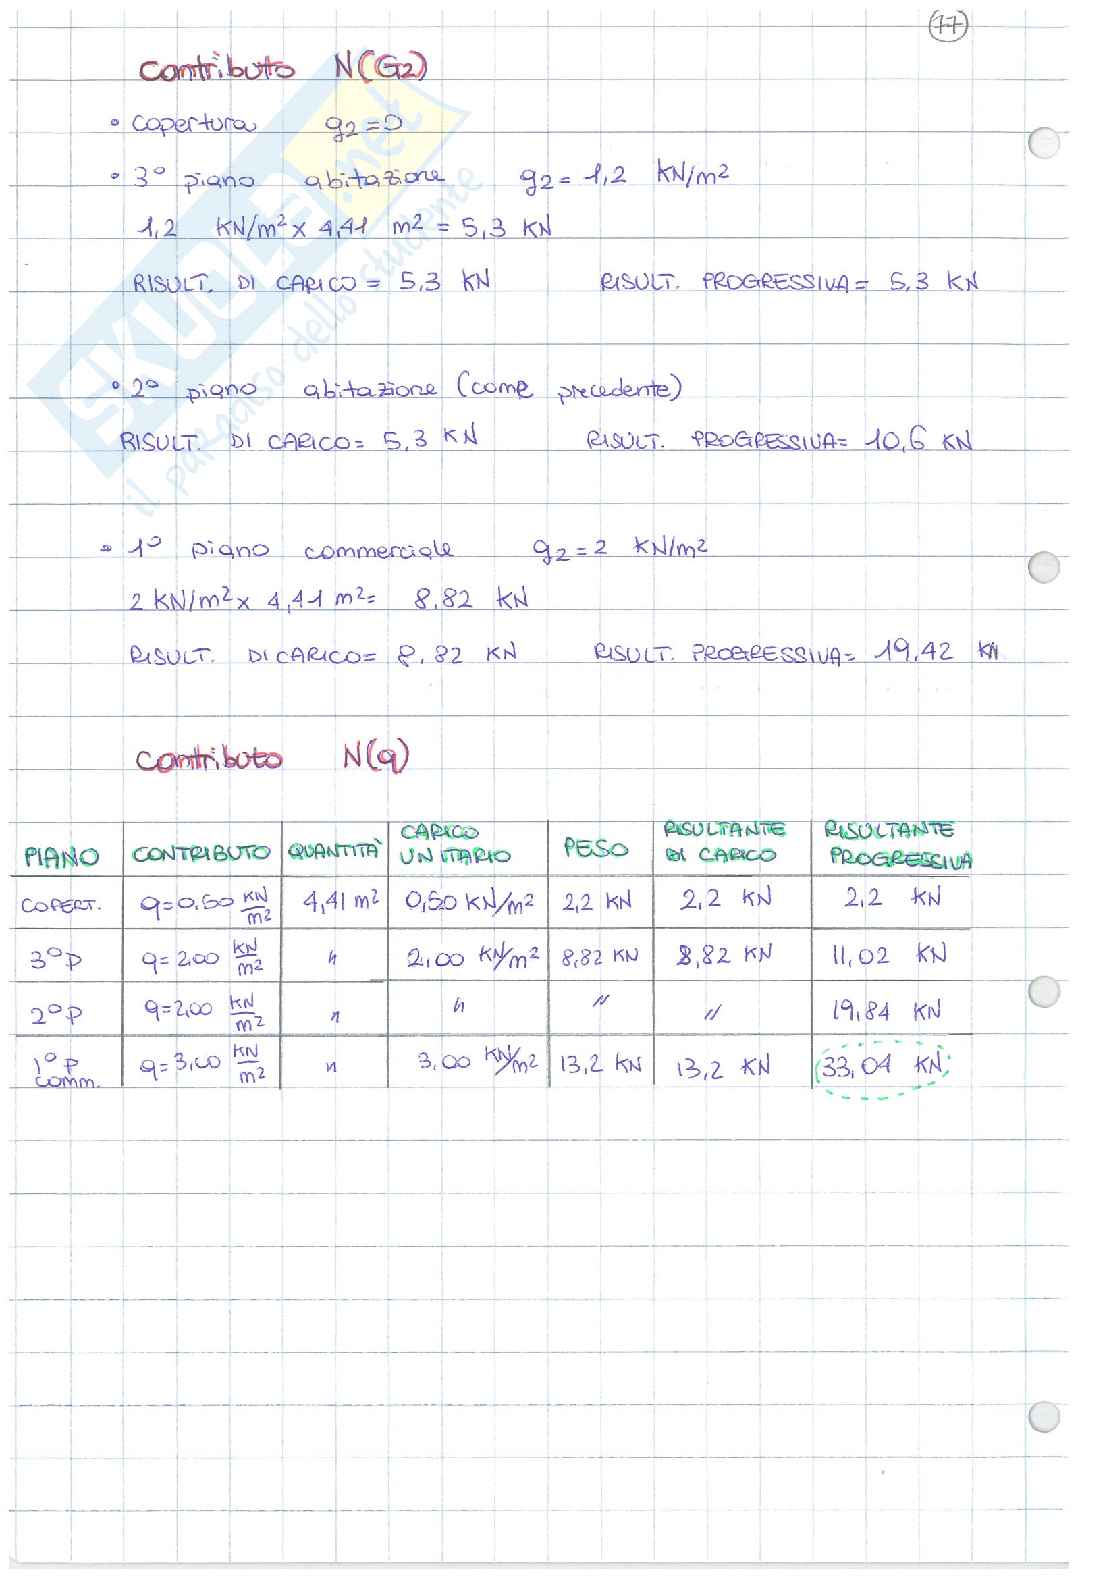 77
Contributo N(G2)
• copertura g2=0
• 3° piano abitazione g2= 1,2 KN/m²
1,2 KN/m² x 4,41 m² = 5,3 KN
RISULT. DI CARICO = 5,3 KN RISULT. PROGRESSIVA = 5,3 KN
• 2° piano abitazione (come precedente)
RISULT. DI CARICO = 5,3 KN RISULT. PROGRESSIVA = 10,6 KN
• 1° piano commerciale g2 = 2 KN/m²
2 KN/m² x 4,41 m² = 8,82 KN
RISULT. DI CARICO = 8,82 KN RISULT. PROGRESSIVA = 19,42 KN
Contributo N(q)
PIANO CONTRIBUTO QUANTITÀ CARICO UNITARIO PESO RISULTANTE DI CARICO RISULTANTE PROGRESSIVA
COPERT. q=0,50 KN/m² 4,41 m² 0,50 KN/m² 2,2 KN 2,2 KN 2,2 KN
3°P q=2,00 KN/m² " 2,00 KN/m² 8,82 KN 8,82 KN 11,02 KN
2°P q=2,00 KN/m² " " " " 19,84 KN
1°P comm. q=3,00 KN/m² " 3,00 KN/m² 13,2 KN 13,2 KN 33,04 KN
SKUOLA.net
il paradiso dello studente